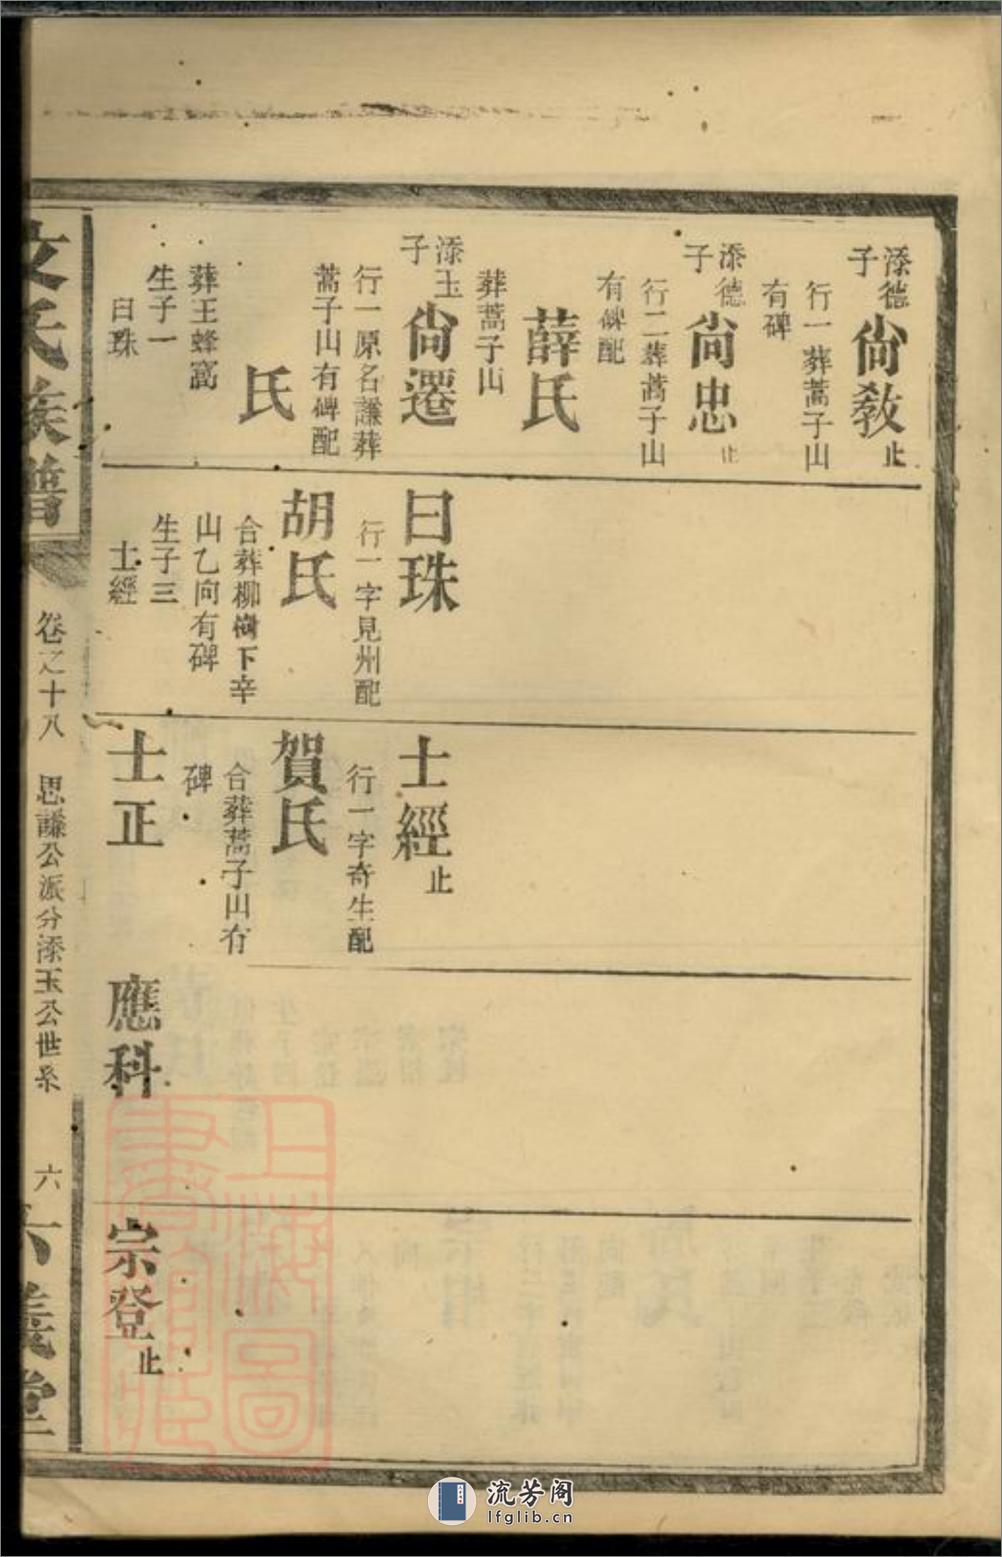 添德子
尙敎止
行一葬蒿子山
有碑
添德子
尙忠止
行二葬蒿子山
有碑配
薛氏
葬蒿子山
添玉子
尙遷
行一原名謙葬
蒿子山有碑配
氏
葬王蜂窩
生子一
曰珠
曰珠
行一字見州配
胡氏
合葬柳樹下辛
山乙向有碑
生子三
士經
士經止
行一字奇生配
賀氏
合葬蒿子山有
碑
士正
應科
宗登止
氏族譜
卷之十八 思謙公派分添玉公世系 六
義堂
上海圖書館藏
流芳阁
lfglib.cn